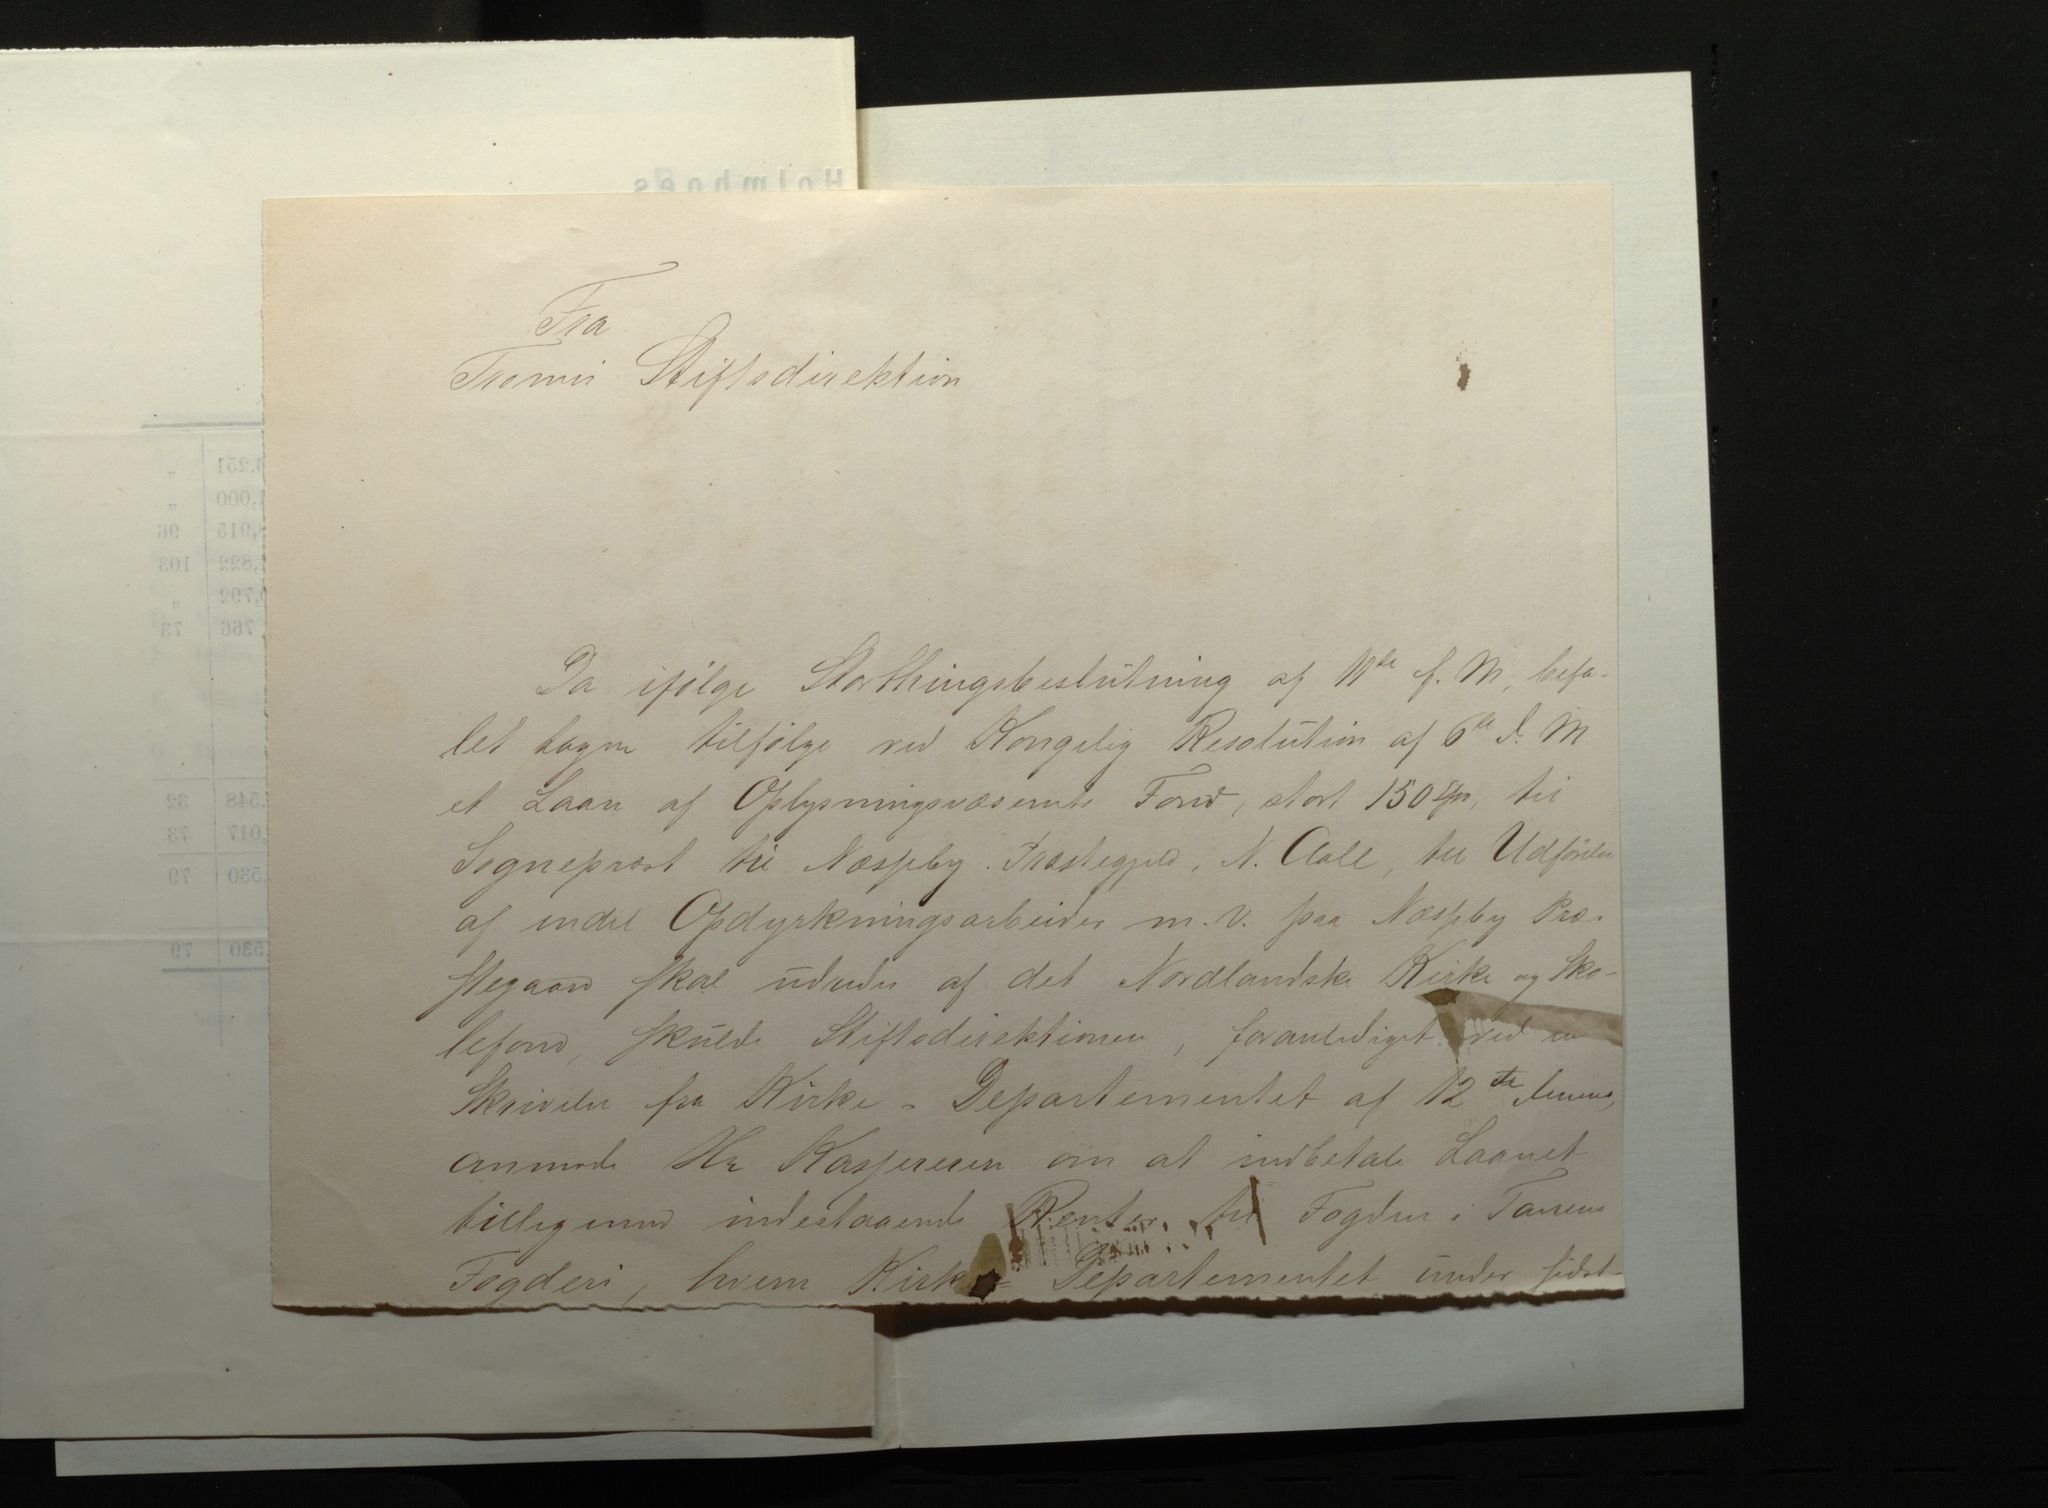 Fra
Tromsö Stiftsdirektion
Da ifölge Storthingsbeslutning af 11te f. M., befa-
let tagen tilfölge ved Kongelig Resolution af 6te d. M
et Laan af Oplysningsvæsenets Fond, stort 150 Spd, til
Sognepræst til Næsseby Præstegjeld, N. Aall, til Udförelse
af endel Opdyrkningsarbeider m. V. paa Næsseby Præ-
stegaard skal udredes af det Nordlandske Kirke og Sko-
lefond, skulde Stiftsdirektionen, foranlediget ved en
Skrivelse fra Kirke-Departementet af 12te dennes,
anmode Hr Kassereren om at indbetale Laanet
tilligemed indestaaende Renter til Fogden i Tanens
Fogderi, hvem Kirke-Departementet under sidst-